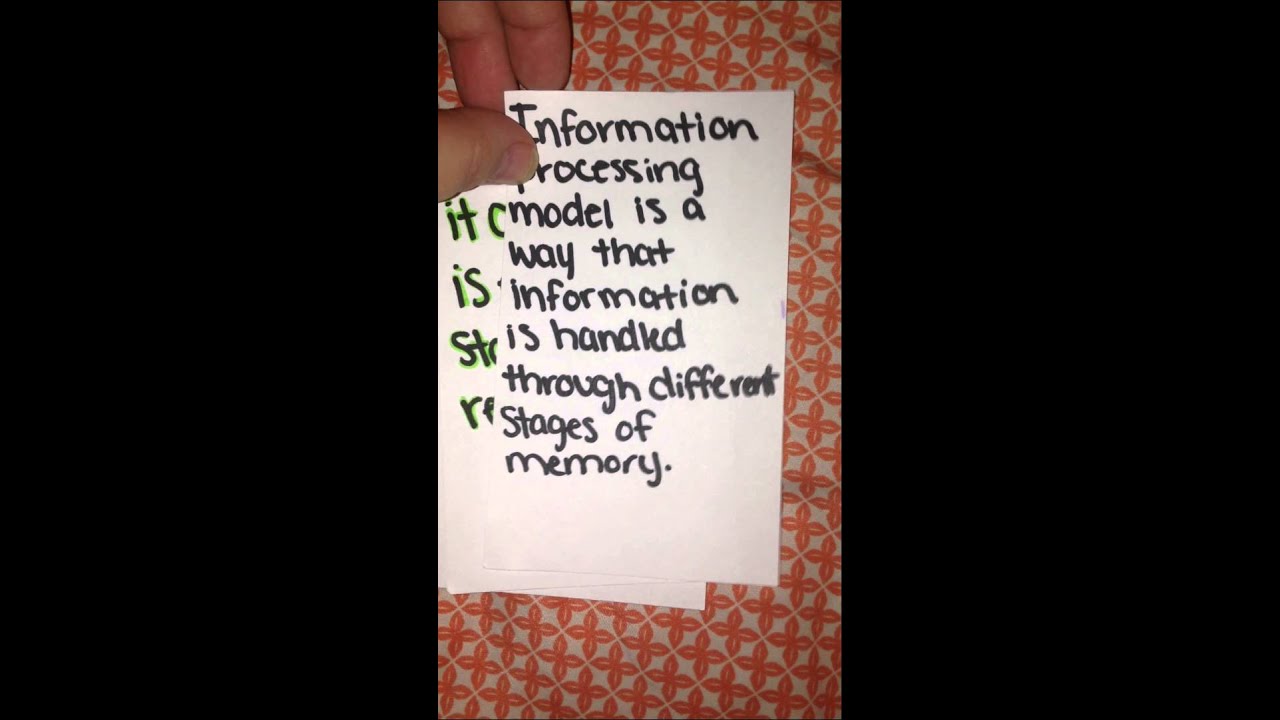 Information
processing
model is a
way that
information
is handled
through different
stages of
memory.
it
is